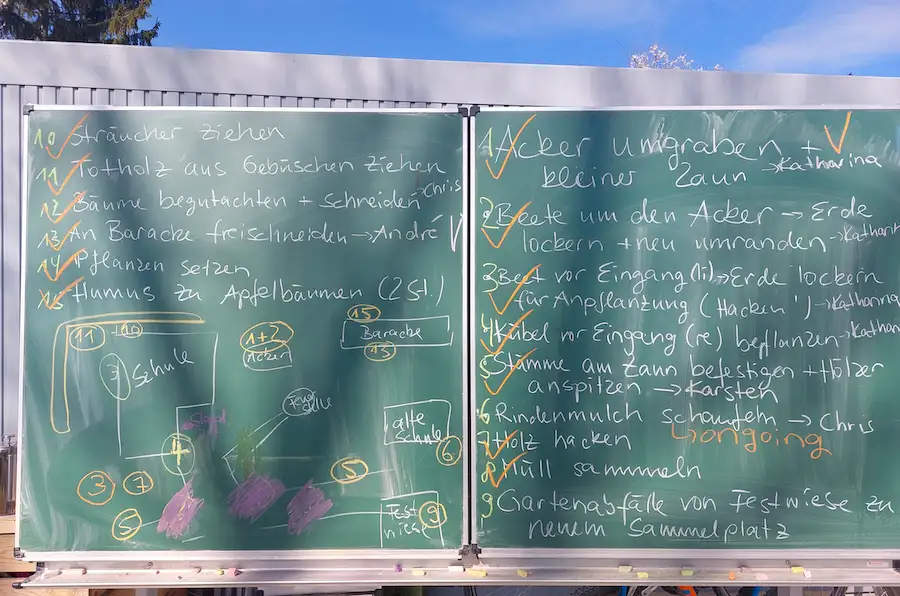 10 Sträucher ziehen
11 Totholz aus Gebüschen ziehen
12 Bäume begutachten + schneiden → Chris
13 An Baracke freischneiden → André
14 Pflanzen setzen
15 Humus zu Apfelbäumen (2 St.)
11 10
Schule
1+2
Acker
15
Baracke
13
4
3
7
5
5
alte
Schule
6
Fest
wiese
9
1 Acker umgraben +
kleiner Zaun → Katharina
2 Beete um den Acker → Erde
lockern + neu umranden → Katharina
3 Beet vor Eingang (li) → Erde lockern
für Anpflanzung (Hacken!) → Katharina
4 Kübel vor Eingang (re) bepflanzen → Katharina
5 Stämme am Zaun befestigen + Hölzer
anspitzen → Karsten
6 Rindenmulch schaufeln → Chris
ongoing
7 Holz hacken
8 Müll sammeln
9 Gartenabfälle von Festwiese zu
neuem Sammelplatz